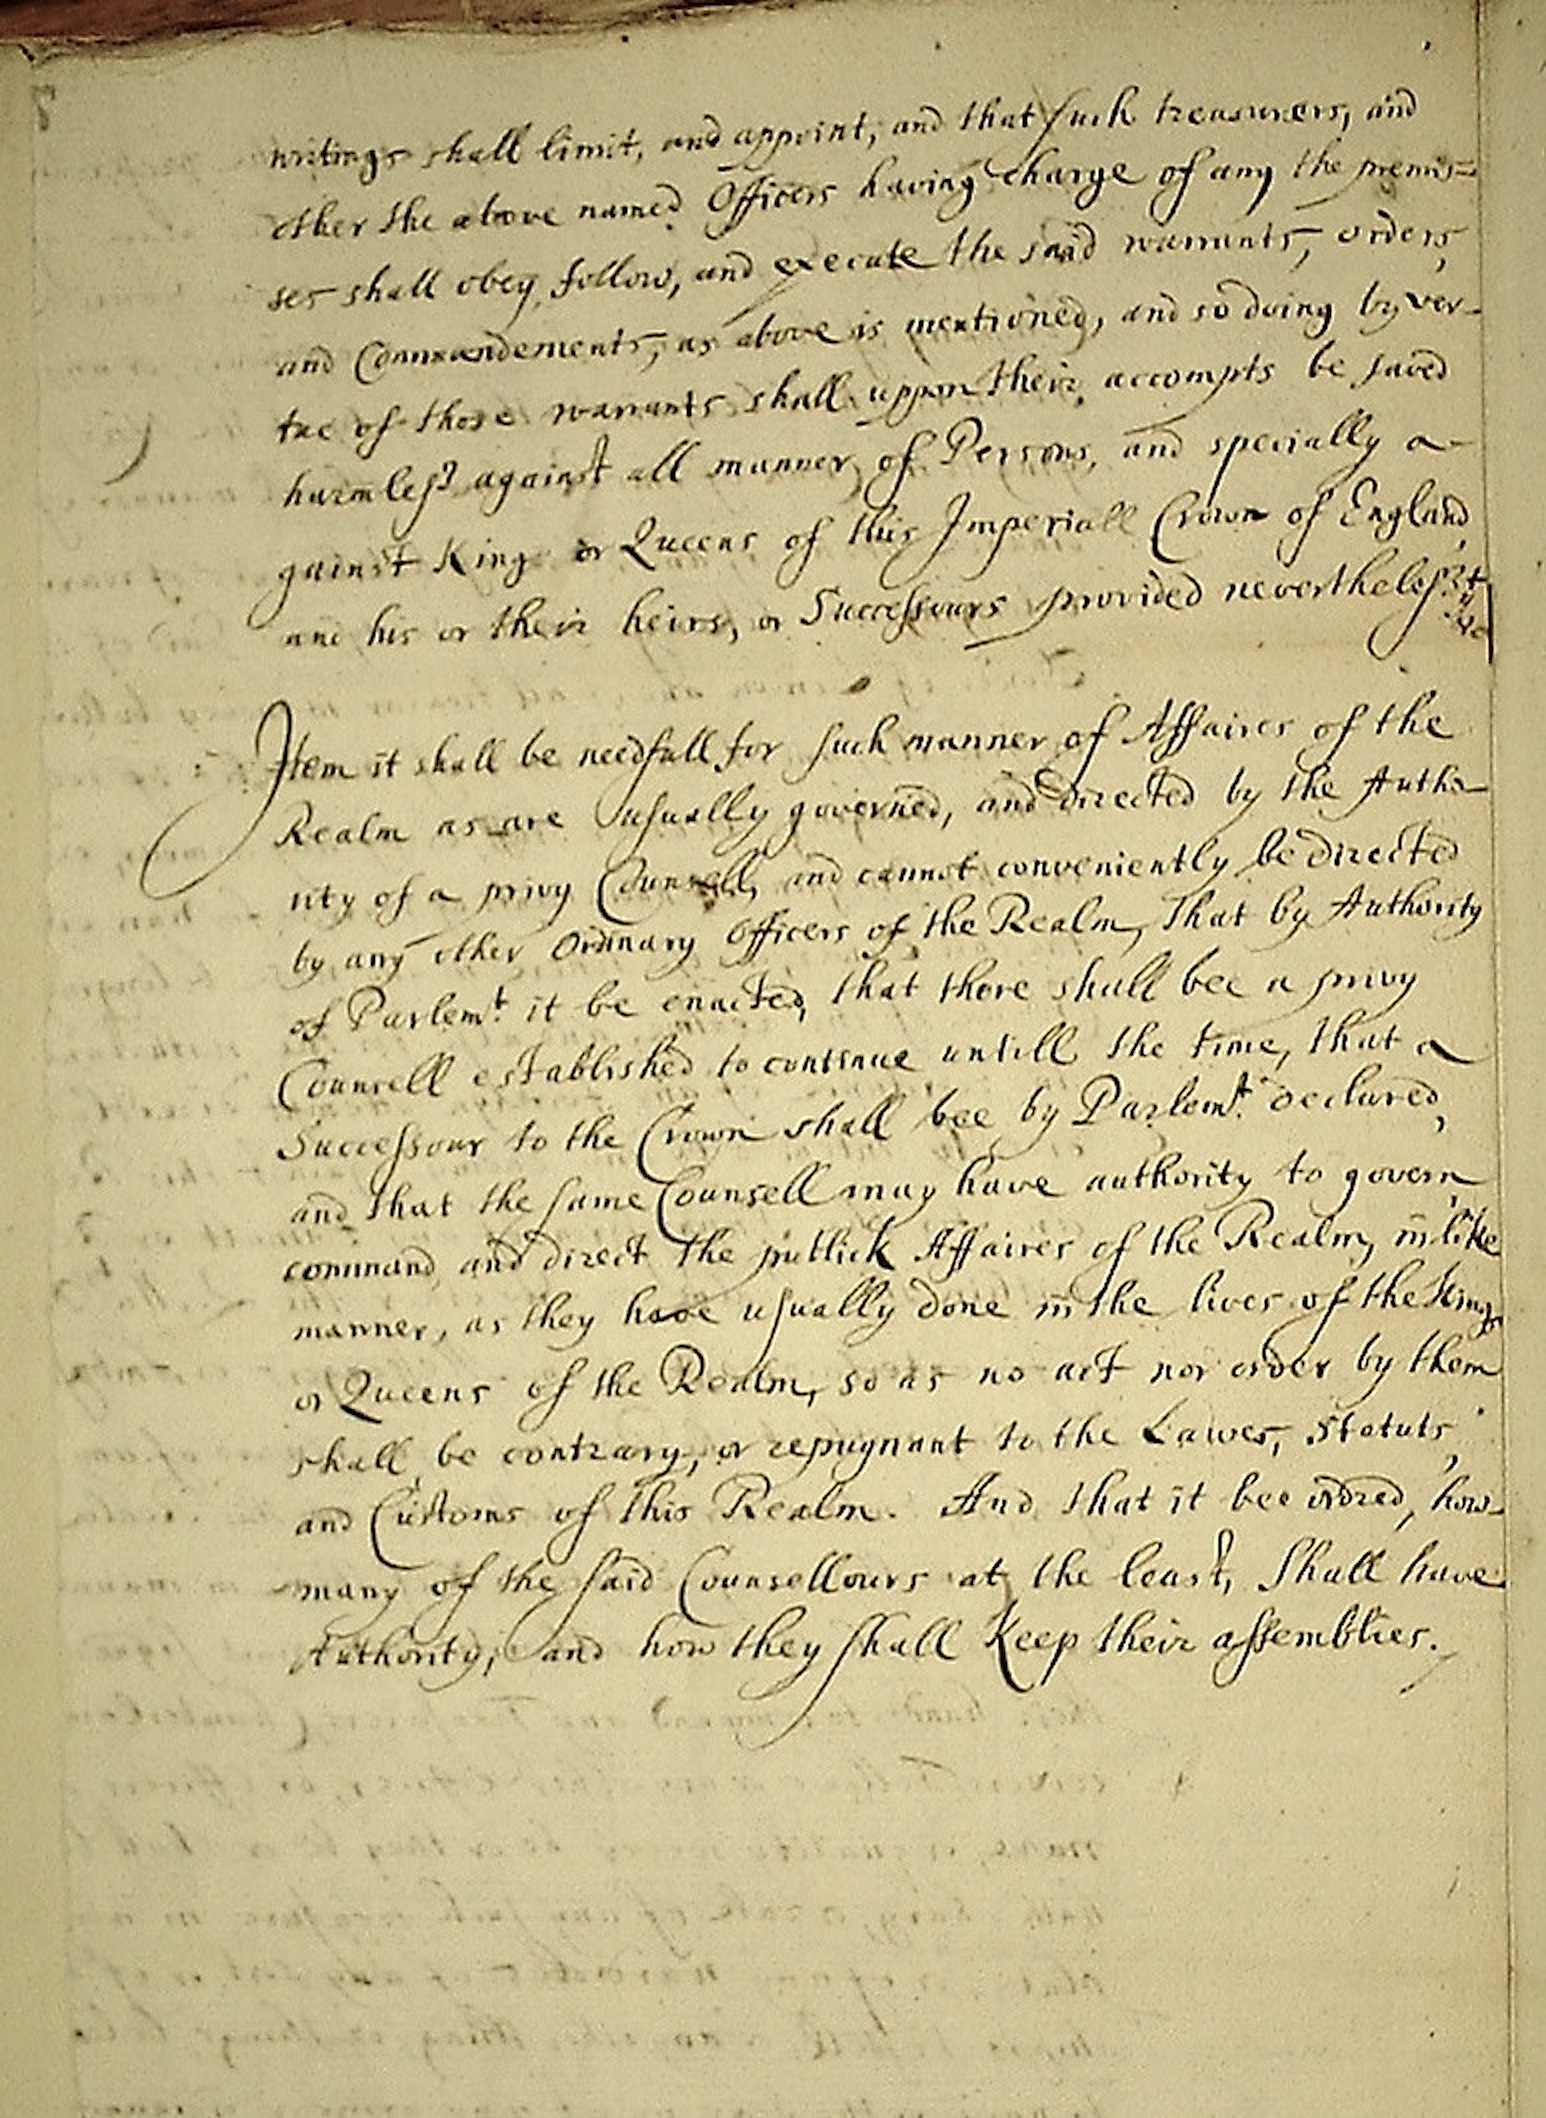 writings shall limit, and appoint, and that such treasurers, and
other the above named Officers having charge of any the premis=
ses shall obey, follow, and execute the said warrants, orders,
and Commandements, as above is mentioned, and so doing by ver-
tue of those warrants shall uppon their accompts be saved
harmless against all manner of Persons, and specially a-
gainst King or Queens of this Imperiall Crown of England,
and his or their heirs, or Successours provided nevertheless
Item it shall be needfull for such manner of Affaires of the
Realm as are usually governed, and directed by the Autho-
rity of a privy Counsell, and cannot conveniently be directed
by any other Ordinary Officers of the Realm, That by Authority
of Parlemt. it be enacted, that there shall bee a privy
Counsell established to continue untill the time, that a
Successour to the Crown shall bee by Parlemt. declared,
and that the same Counsell may have authority to govern
command and direct the publick Affaires of the Realm, in like
manner, as they have usually done in the lives of the Kings
or Queens of the Realm, so as no act nor order by them
shall be contrary, or repugnant to the Lawes, Statuts,
and Customs of this Realm. And that it bee ordred, how-
many of the said Counsellours at the least, Shall have
Authority, and how they shall Keep their assemblies.